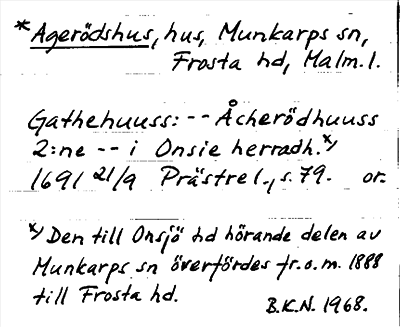 *Agerödshus, hus, Munkarps sn,
Frosta hd, Malm. l.
Gathehuuss: -- Åcherödhuuss
2:ne -- i Onsie herradh.x)
1691 21/9 Prästrel., s. 79. or.
x) Den till Onsjö hd hörande delen av
Munkarps sn överfördes fr.o.m. 1888
till Frosta hd.
B.K.N. 1968.